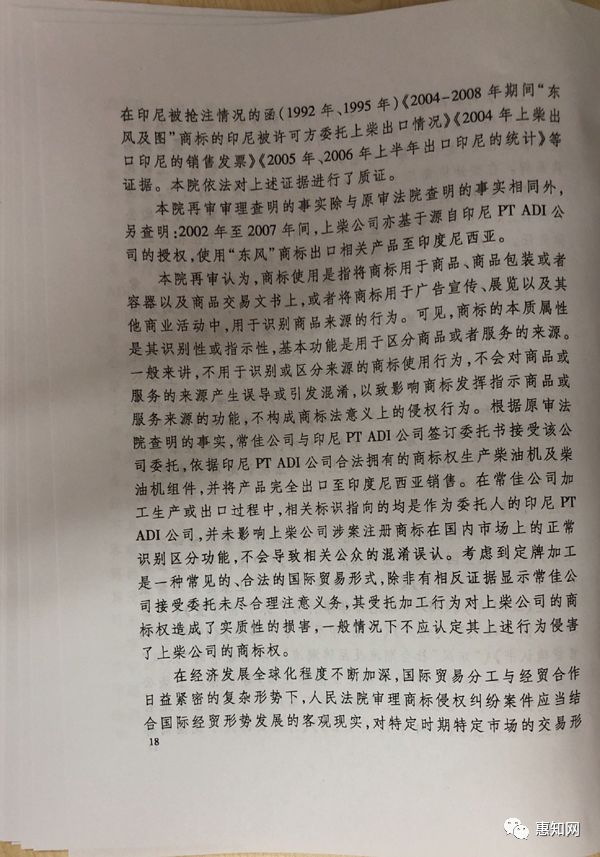 在印尼被抢注情况的函(1992 年、1995 年)《2004-2008 年期间“东
风及图”商标的印尼被许可方委托上柴出口情况》《2004 年上柴出
口印尼的销售发票》《2005 年、2006 年上半年出口印尼的统计》等
证据。本院依法对上述证据进行了质证。
本院再审审理查明的事实除与原审法院查明的事实相同外,
另查明:2002 年至 2007 年间,上柴公司亦基于源自印尼 PT ADI 公
司的授权,使用“东风”商标出口相关产品至印度尼西亚。
本院再审认为,商标使用是指将商标用于商品、商品包装或者
容器以及商品交易文书上,或者将商标用于广告宣传、展览以及其
他商业活动中,用于识别商品来源的行为。可见,商标的本质属性
是其识别性或指示性,基本功能是用于区分商品或者服务的来源。
一般来讲,不用于识别或区分来源的商标使用行为,不会对商品或
服务的来源产生误导或引发混淆,以致影响商标发挥指示商品或
服务来源的功能,不构成商标法意义上的侵权行为。根据原审法
院查明的事实,常佳公司与印尼 PT ADI 公司签订委托书接受该公
司委托,依据印尼 PT ADI 公司合法拥有的商标权生产柴油机及柴
油机组件,并将产品完全出口至印度尼西亚销售。在常佳公司加
工生产或出口过程中,相关标识指向的均是作为委托人的印尼 PT
ADI 公司,并未影响上柴公司涉案注册商标在国内市场上的正常
识别区分功能,不会导致相关公众的混淆误认。考虑到定牌加工
是一种常见的、合法的国际贸易形式,除非有相反证据显示常佳公
司接受委托未尽合理注意义务,其受托加工行为对上柴公司的商
标权造成了实质性的损害,一般情况下不应认定其上述行为侵害
了上柴公司的商标权。
在经济发展全球化程度不断加深,国际贸易分工与经贸合作
日益紧密的复杂形势下,人民法院审理商标侵权纠纷案件应当结
合国际经贸形势发展的客观现实,对特定时期特定市场的交易形
18
惠知网